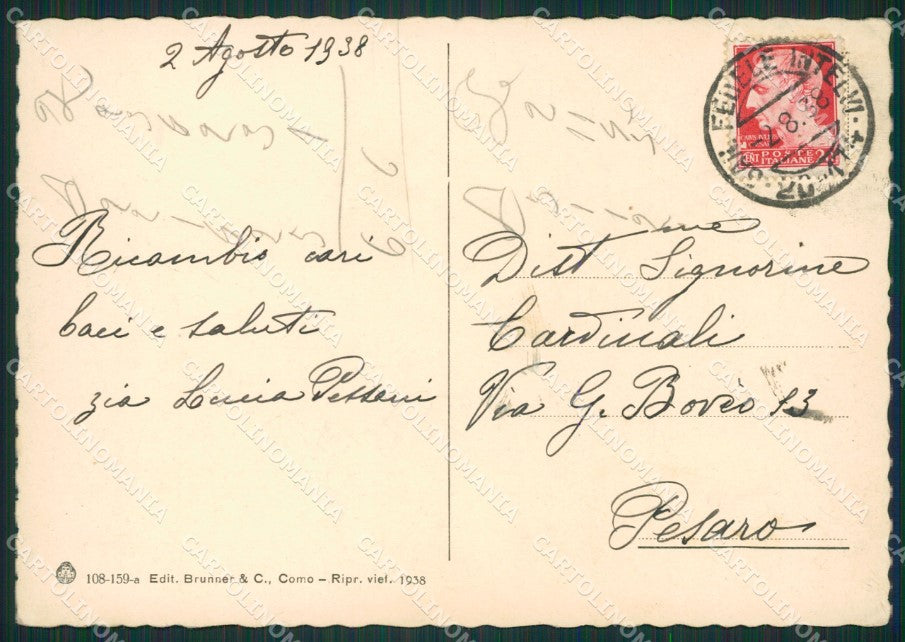 2 Agosto 1938
Ricambio cari
baci e saluti
zia Lucia Pessani
108-159-a Edit. Brunner & C., Como – Ripr. viet. 1938
Dist me Signorine
Cardinali
Via G. Bovio 13
Pesaro
POSTE
ITALIANE
FEDELE INTELVI
CARTOLINOMANIA